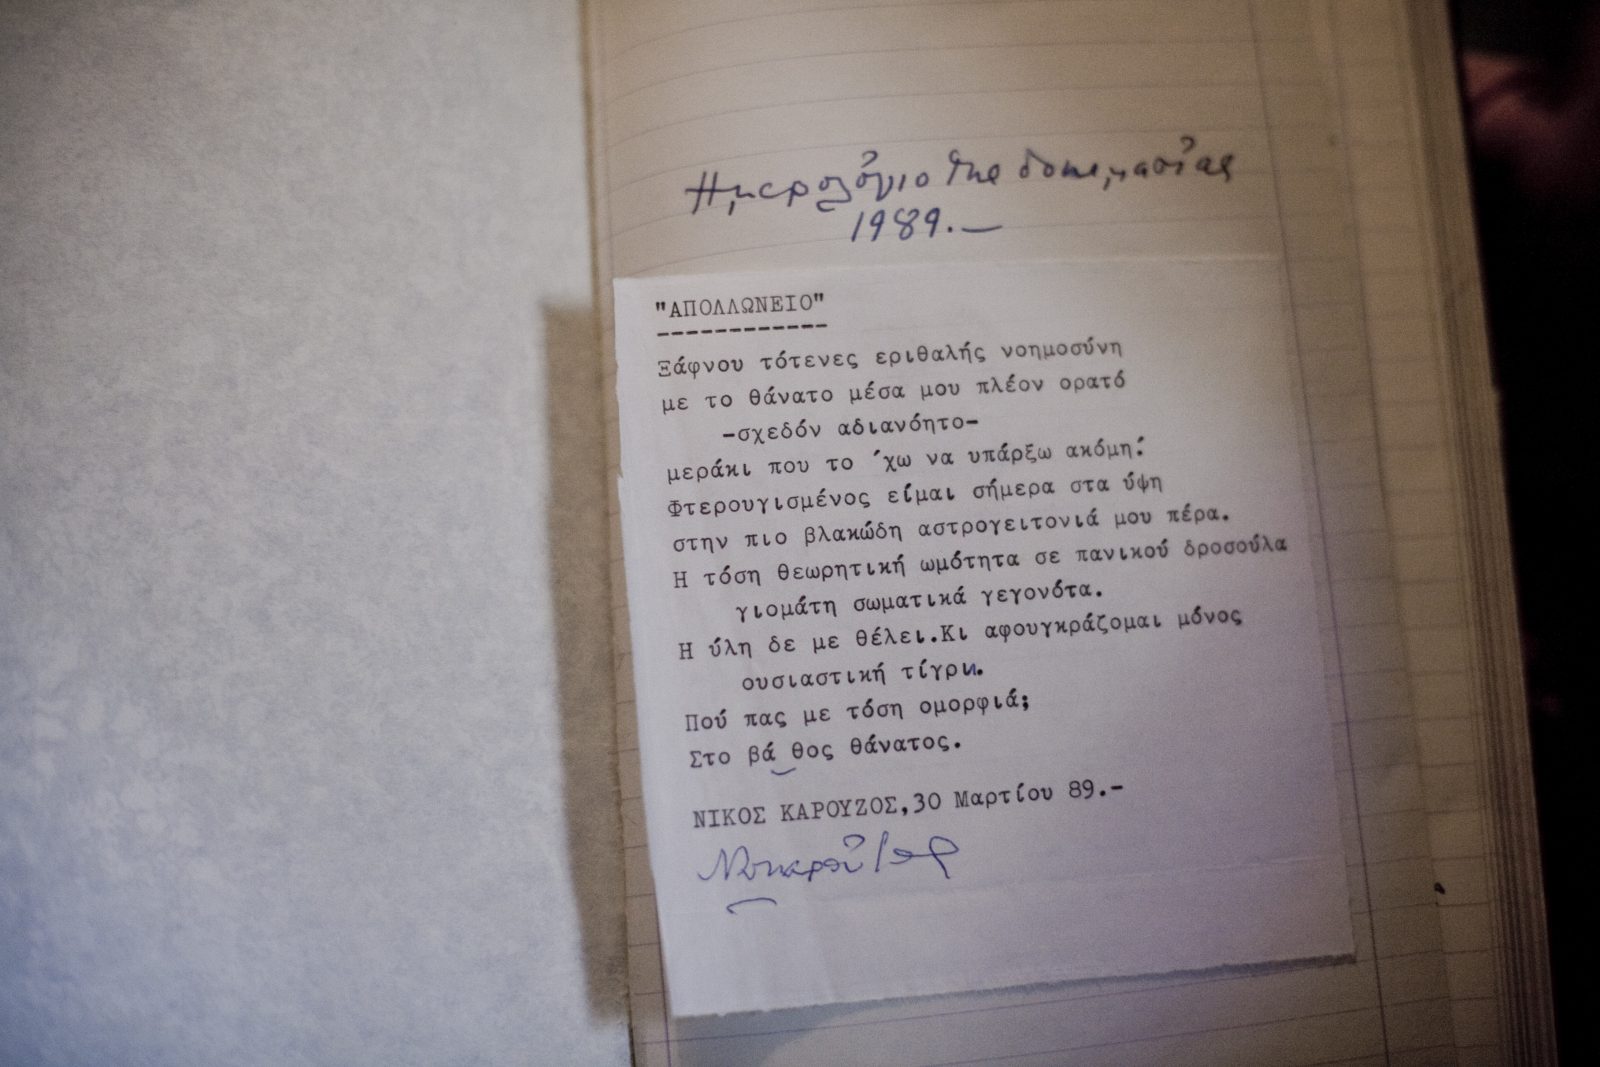 Ημερολόγιο της δοκιμασίας
1989.—
"ΑΠΟΛΛΩΝΕΙΟ"
------------
Ξάφνου τότενες εριθαλής νοημοσύνη
με το θάνατο μέσα μου πλέον ορατό
-σχεδόν αδιανόητο-
μεράκι που το ΄χω να υπάρξω ακόμη:
Φτερουγισμένος είμαι σήμερα στα ύψη
στην πιο βλακώδη αστρογειτονιά μου πέρα.
Η τόση θεωρητική ωμότητα σε πανικού δροσούλα
γιομάτη σωματικά γεγονότα.
Η ύλη δε με θέλει.Κι αφουγκράζομαι μόνος
ουσιαστική τίγρη.
Πού πας με τόση ομορφιά;
Στο βά θος θάνατος.
ΝΙΚΟΣ ΚΑΡΟΥΖΟΣ,30 Μαρτίου 89.-